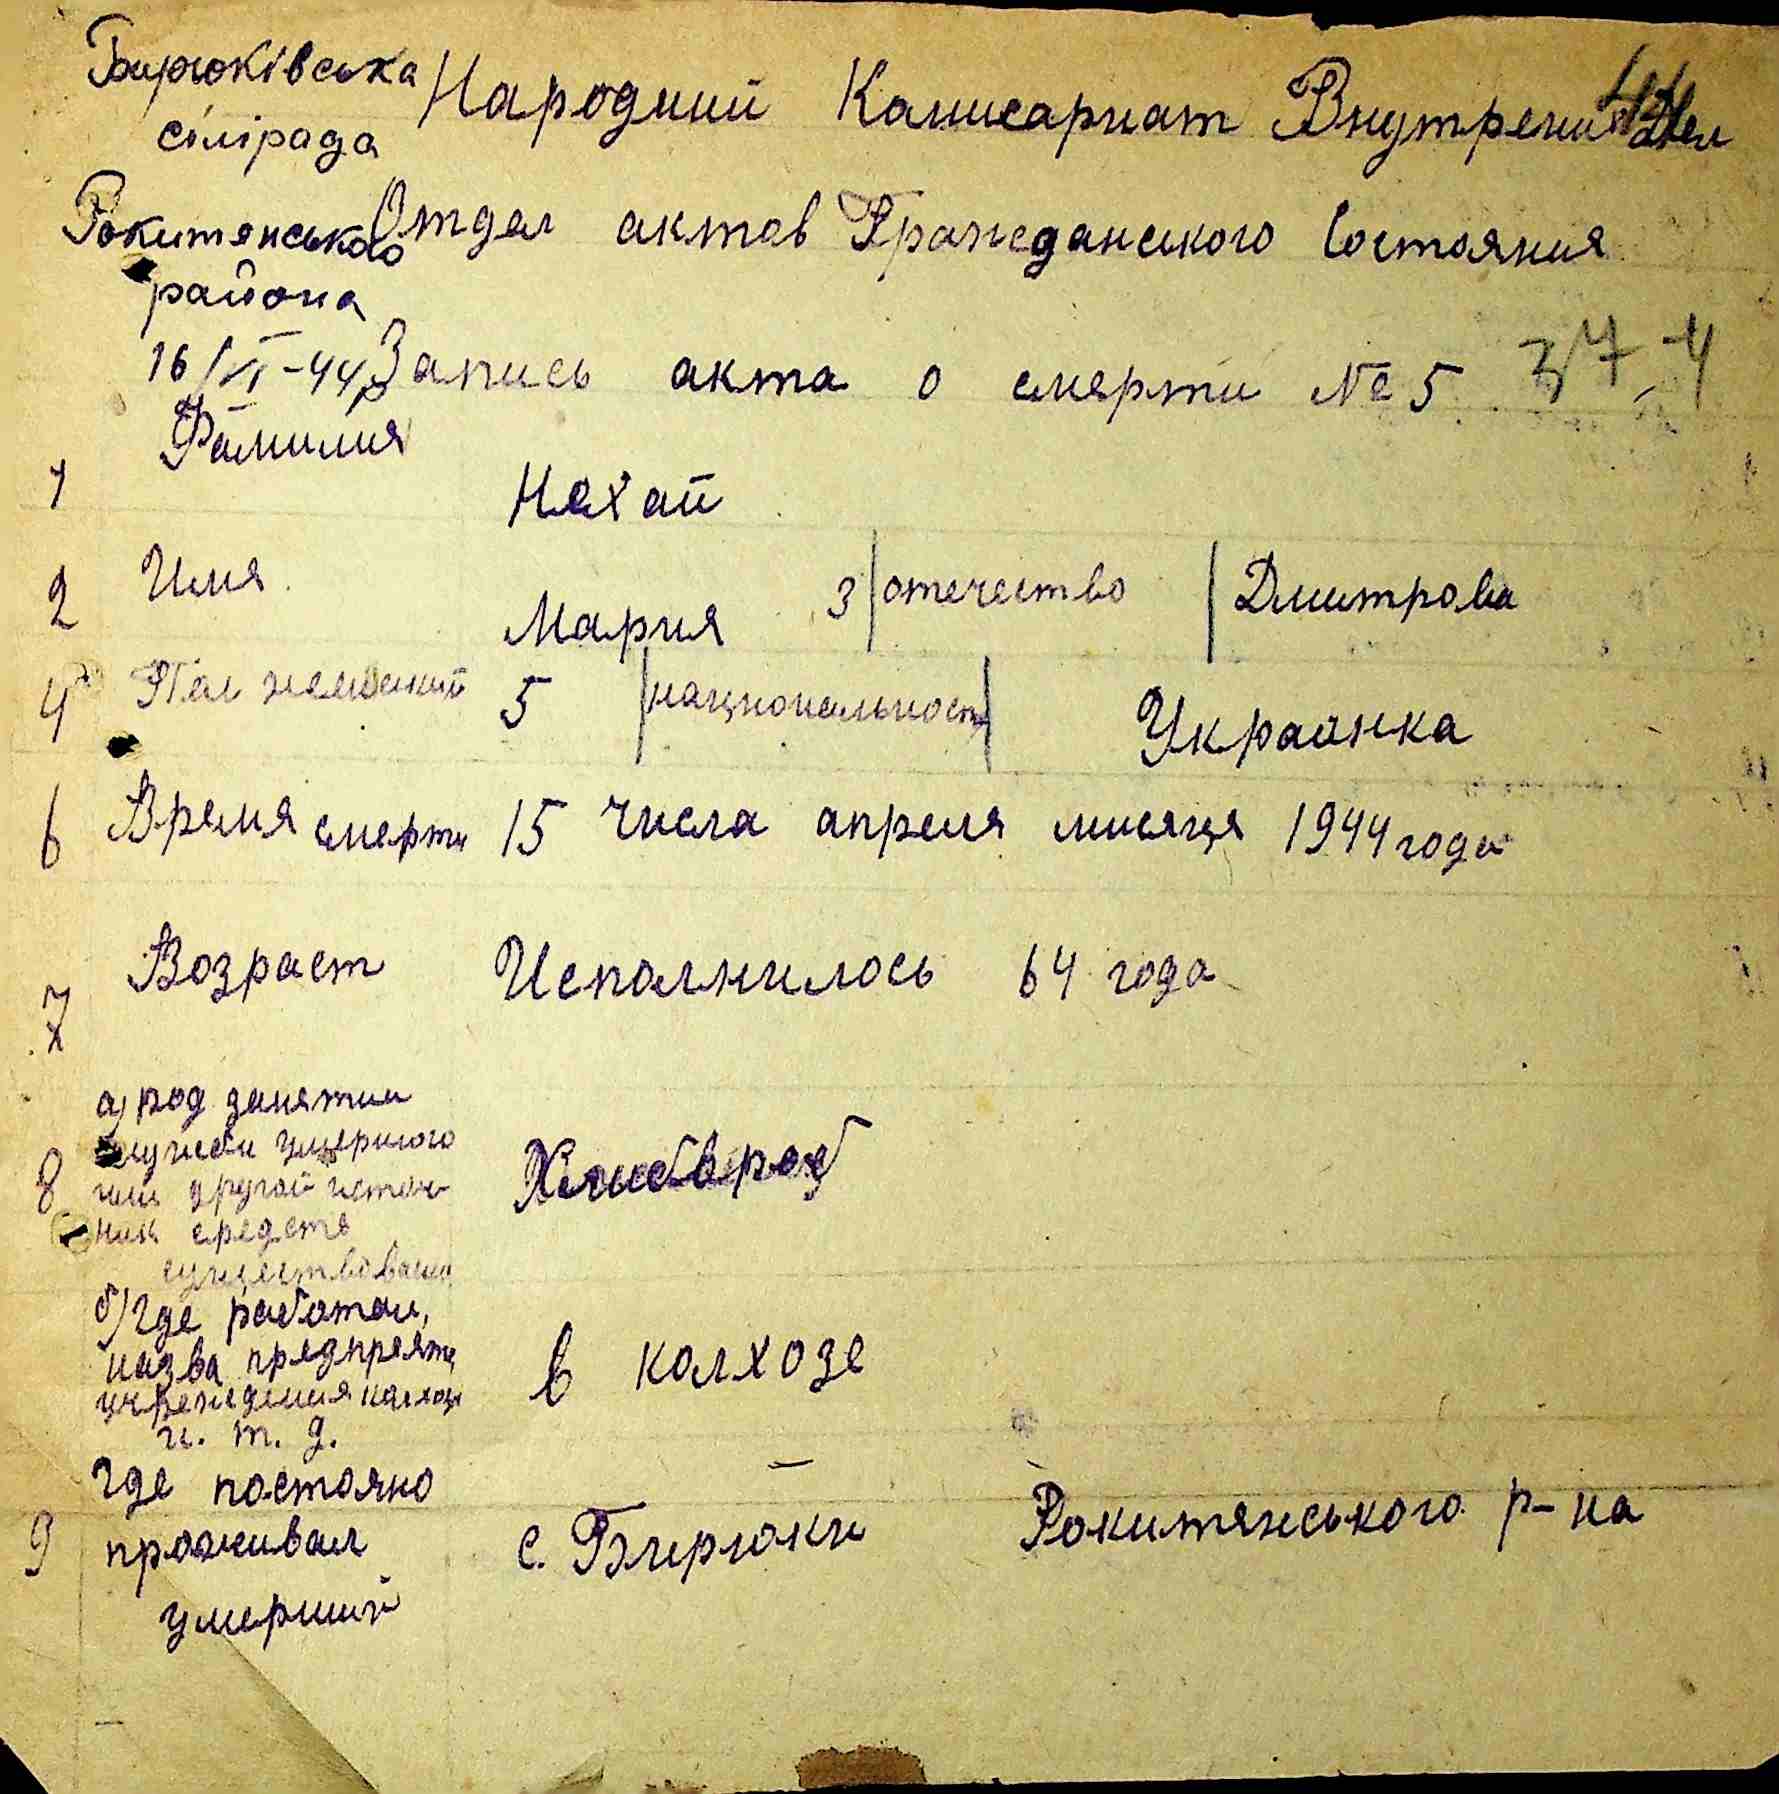 Бирюківська
сілірада
Народний Камисариат Внутрених Дел
Рокитянського
района
Отдел актов Гражданского Состояния
16/VI-44р
Запись акта о смерти № 5 37-4
1 Фамилия Нехай
2 Имя Мария 3 отечество Дмитрова
4 Пол женский 5 национальност Украинка
6 Время смерти 15 числа апреля мисяця 1944 года
7 Возраст Исполнилось 64 года
а) род занятии
службы умершого
8 или другой источ-
ник средств
существования
Хлибороб
б) где работал,
назва предпреятя
учреждения колхоза
и. т. д.
в колхозе
где постояно
9 проживал
умерший
с. Бирюки Рокитянського р-на